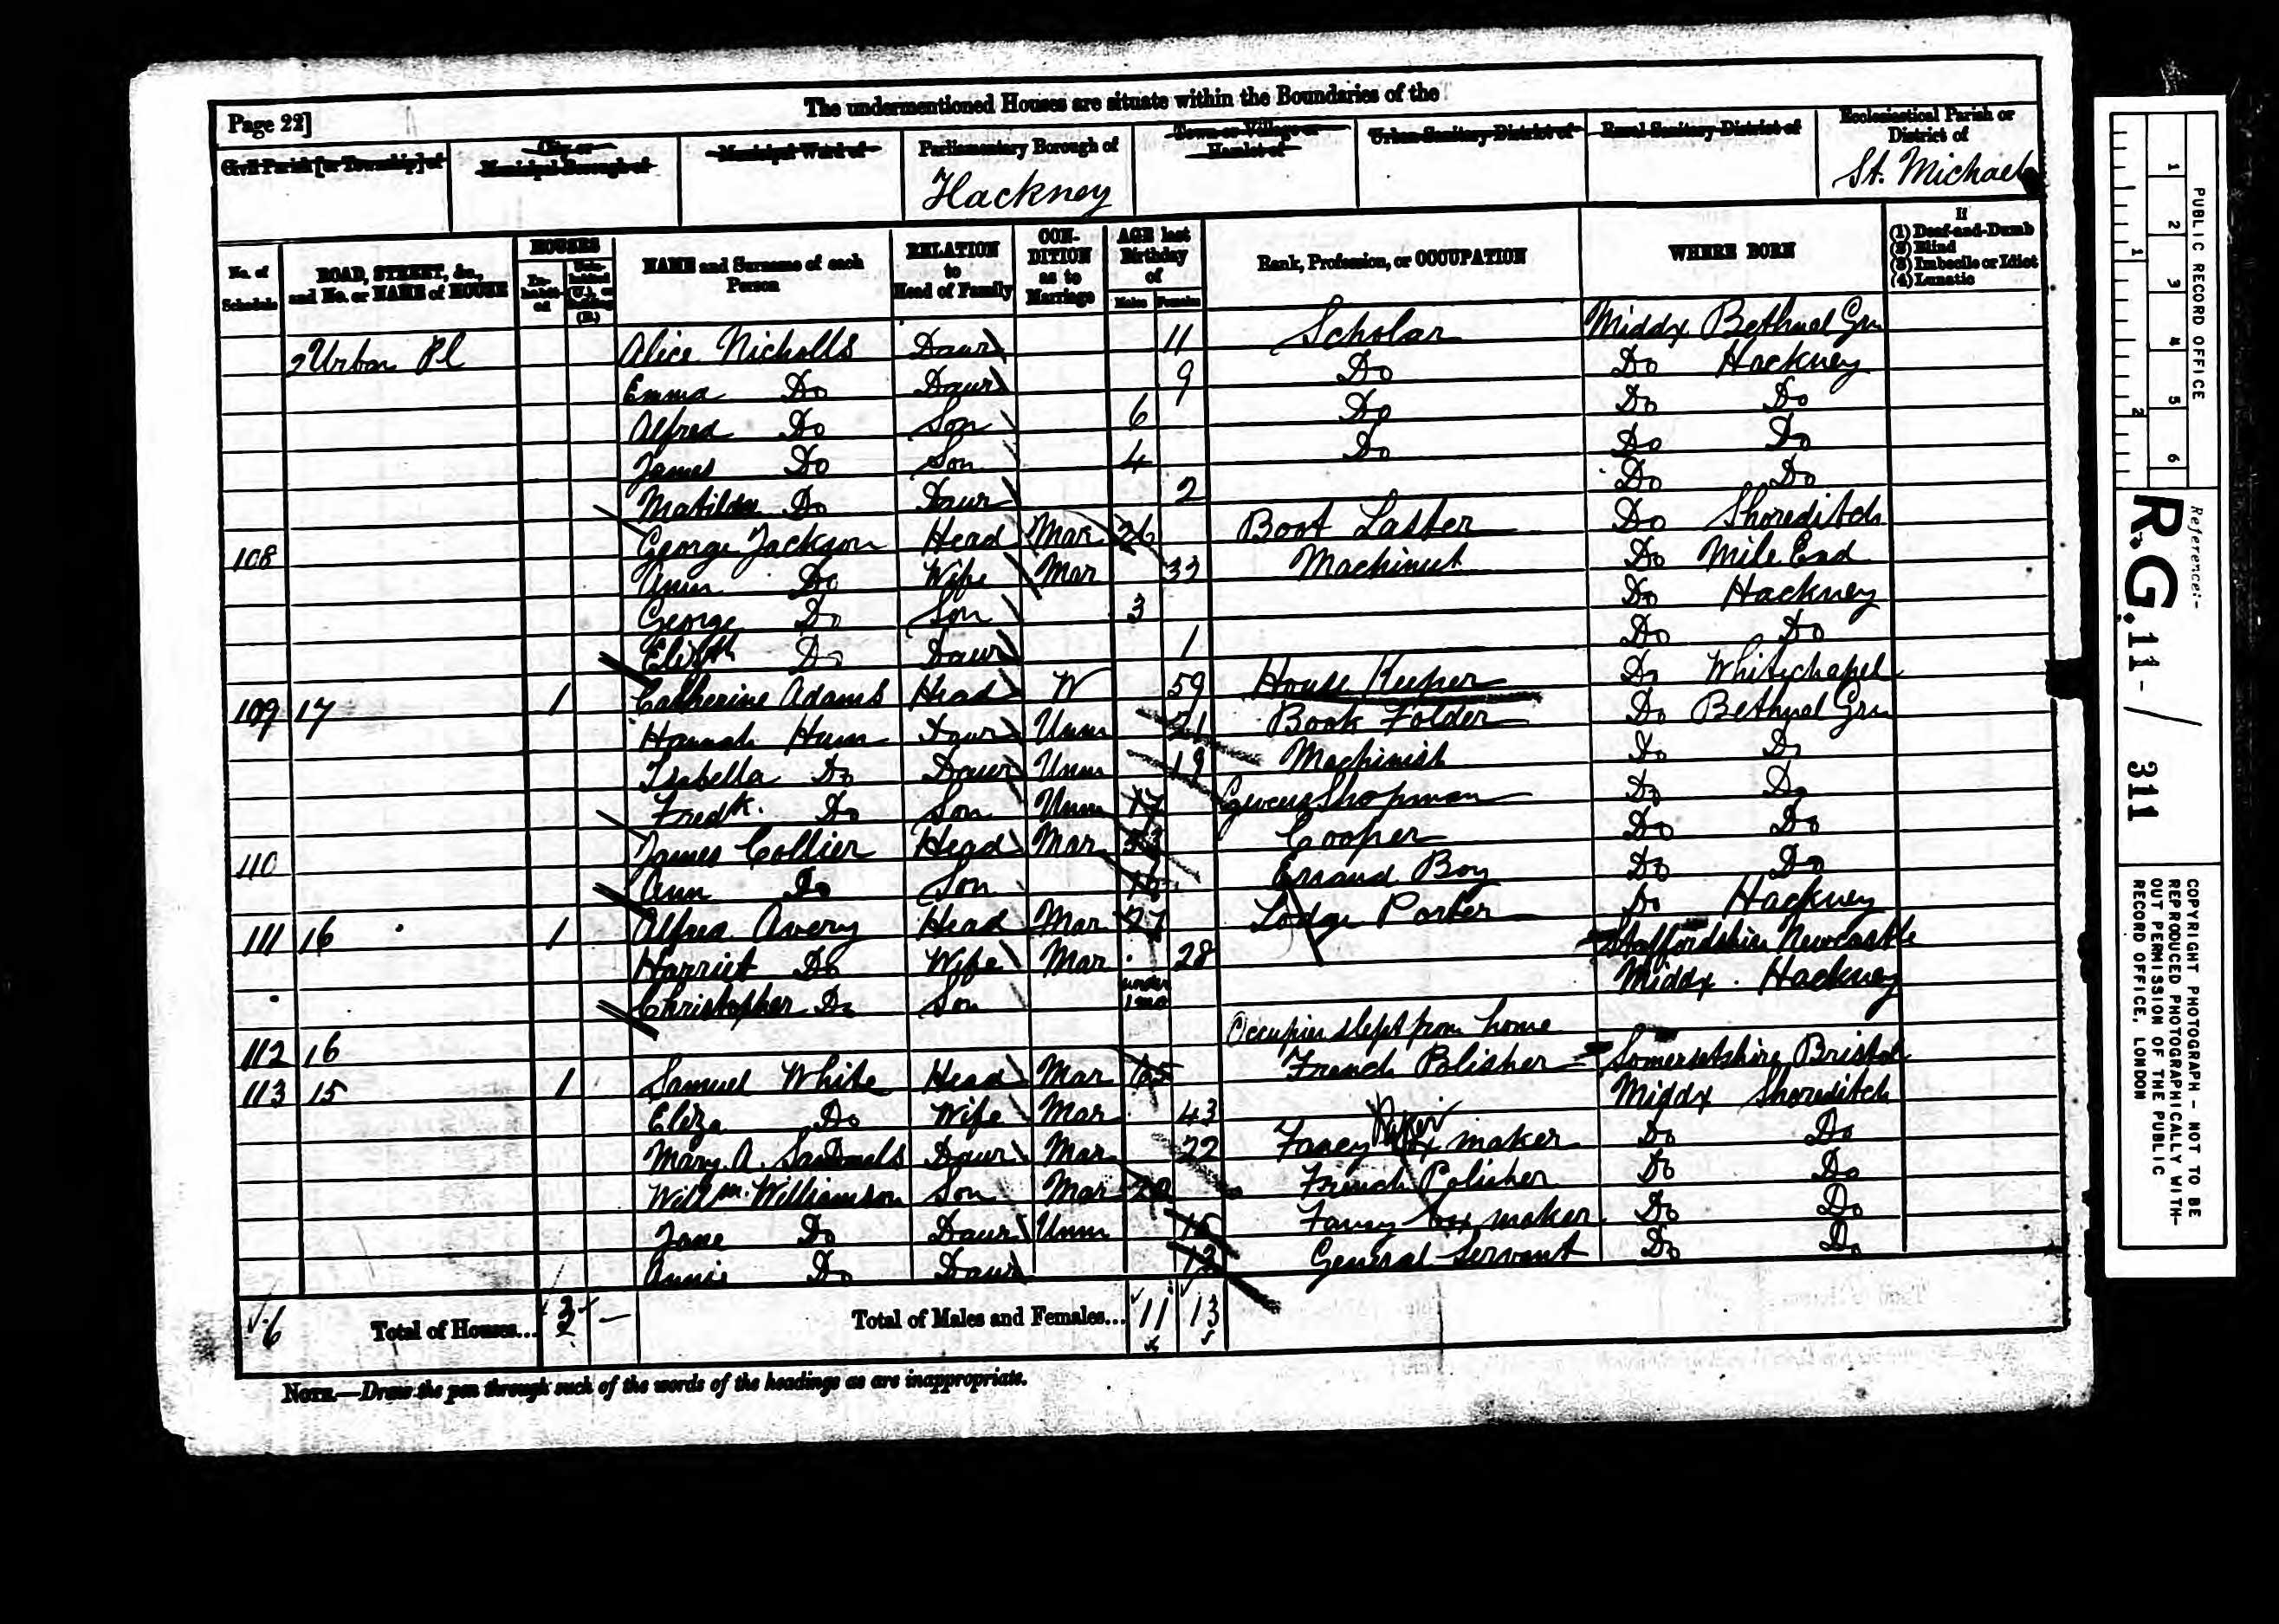 The undermentioned Houses are situate within the Boundaries of the
Page 22]
Civil Parish [or Township] of
City or Municipal Borough of
Municipal Ward of
Parliamentary Borough of
Hackney
Town or Village or Hamlet of
Urban Sanitary District of
Rural Sanitary District of
Ecclesiastical Parish or District of
St. Michael
No. of Schedule
ROAD, STREET, &c., and No. or NAME of HOUSE
HOUSES
In-habit-ed
Unin-habited (U.), or Building (B.)
NAME and Surname of each Person
RELATION to Head of Family
CON-DITION as to Marriage
AGE last Birthday of
Males Females
Rank, Profession, or OCCUPATION
WHERE BORN
If
(1) Deaf-and-Dumb
(2) Blind
(3) Imbecile or Idiot
(4) Lunatic
Urban Pl Alice Nicholls Daur 11 Scholar Middx Bethnal Grn
Emma Do Daur 9 Do Do Hackney
Alfred Do Son 6 Do Do Do
James Do Son 4 Do Do Do
Matilda Do Daur 2 Do Do
108 George Jackson Head Mar 26 Boot Laster Do Shoreditch
Do Wife Mar 33 Machinist Do Mile End
George Do Son 3 Do Hackney
Elizth Do Daur 1 Do Do
109 17 1 Catherine Adams Head W 59 House Keeper Do Whitechapel
Hannah Hum Daur Unm 21 Book Folder Do Bethnal Grn
Isabella Do Daur Unm 19 Machinist Do Do
Fredk. Do Son Unm 17 Shopman Do Do
110 James Collier Head Mar Cooper Do Do
Ann Do Son 16 Errand Boy Do Do
111 16 1 Alfred Avery Head Mar 27 Lodge Porter Do Hackney
Harriet Do Wife Mar 28 Staffordshire Newcastle
Christopher Do Son under 1 mo Middx. Hackney
112 16 Occupier slept from home
113 15 1 Samuel White Head Mar 65 French Polisher Somersetshire Bristol
Eliza Do Wife Mar 43 Middx Shoreditch
Mary. A. Daur Mar 22 Fancy Box maker Do Do
Willm. Williamson Son Mar 20 French Polisher Do Do
Jane Do Daur Unm 16 Fancy box maker Do Do
Annie Do Daur 13 General Servant Do Do
6 Total of Houses... 3 — Total of Males and Females... 11 13
NOTE.—Draw the pen through such of the words of the headings as are inappropriate.
PUBLIC RECORD OFFICE
1 2 3 4 5 6
1 2
Reference:-
R.G. 11 - / 311
COPYRIGHT PHOTOGRAPH - NOT TO BE
REPRODUCED PHOTOGRAPHICALLY WITH-
OUT PERMISSION OF THE PUBLIC
RECORD OFFICE, LONDON